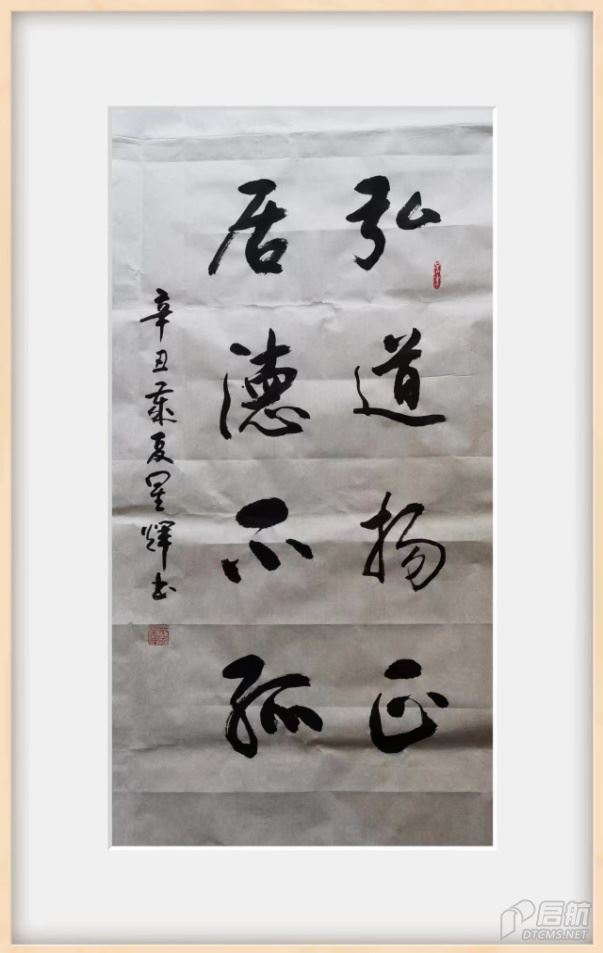 弘道扬正
居德不孤
辛丑岁夏星辉书
启航
DTCMS.NET